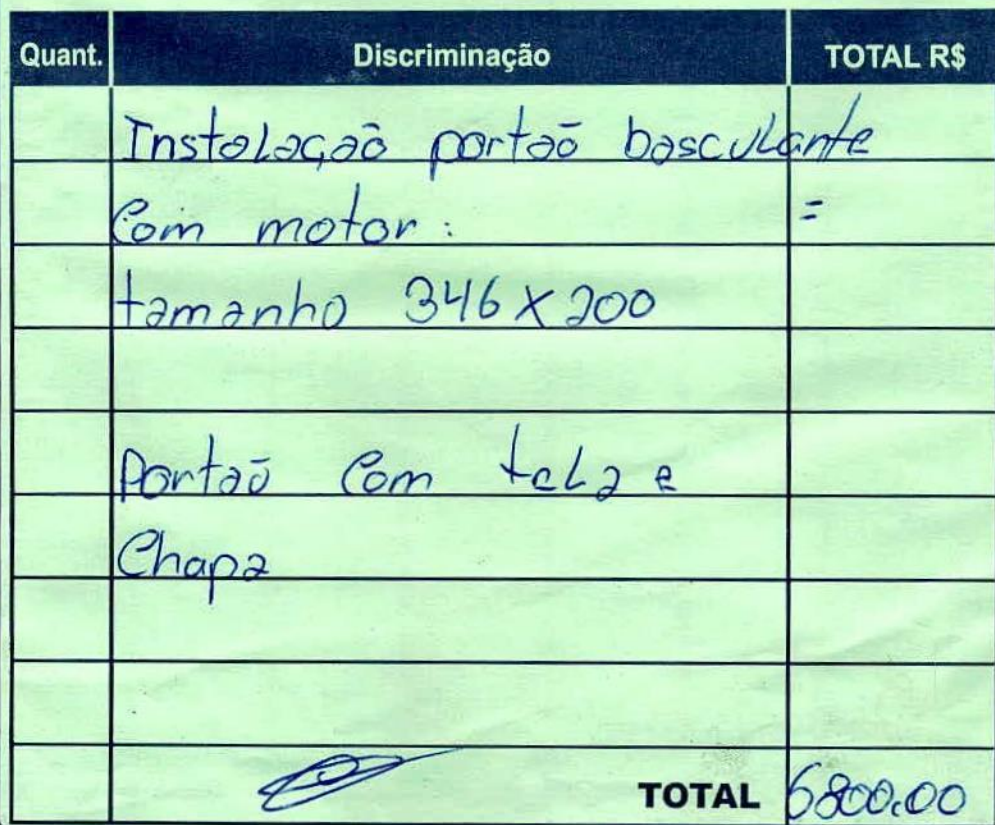 Quant. Discriminação TOTAL R$
Instalação portão basculante
Com motor: =
tamanho 346 x 200
Portão com tela e
Chapa
TOTAL 6800,00